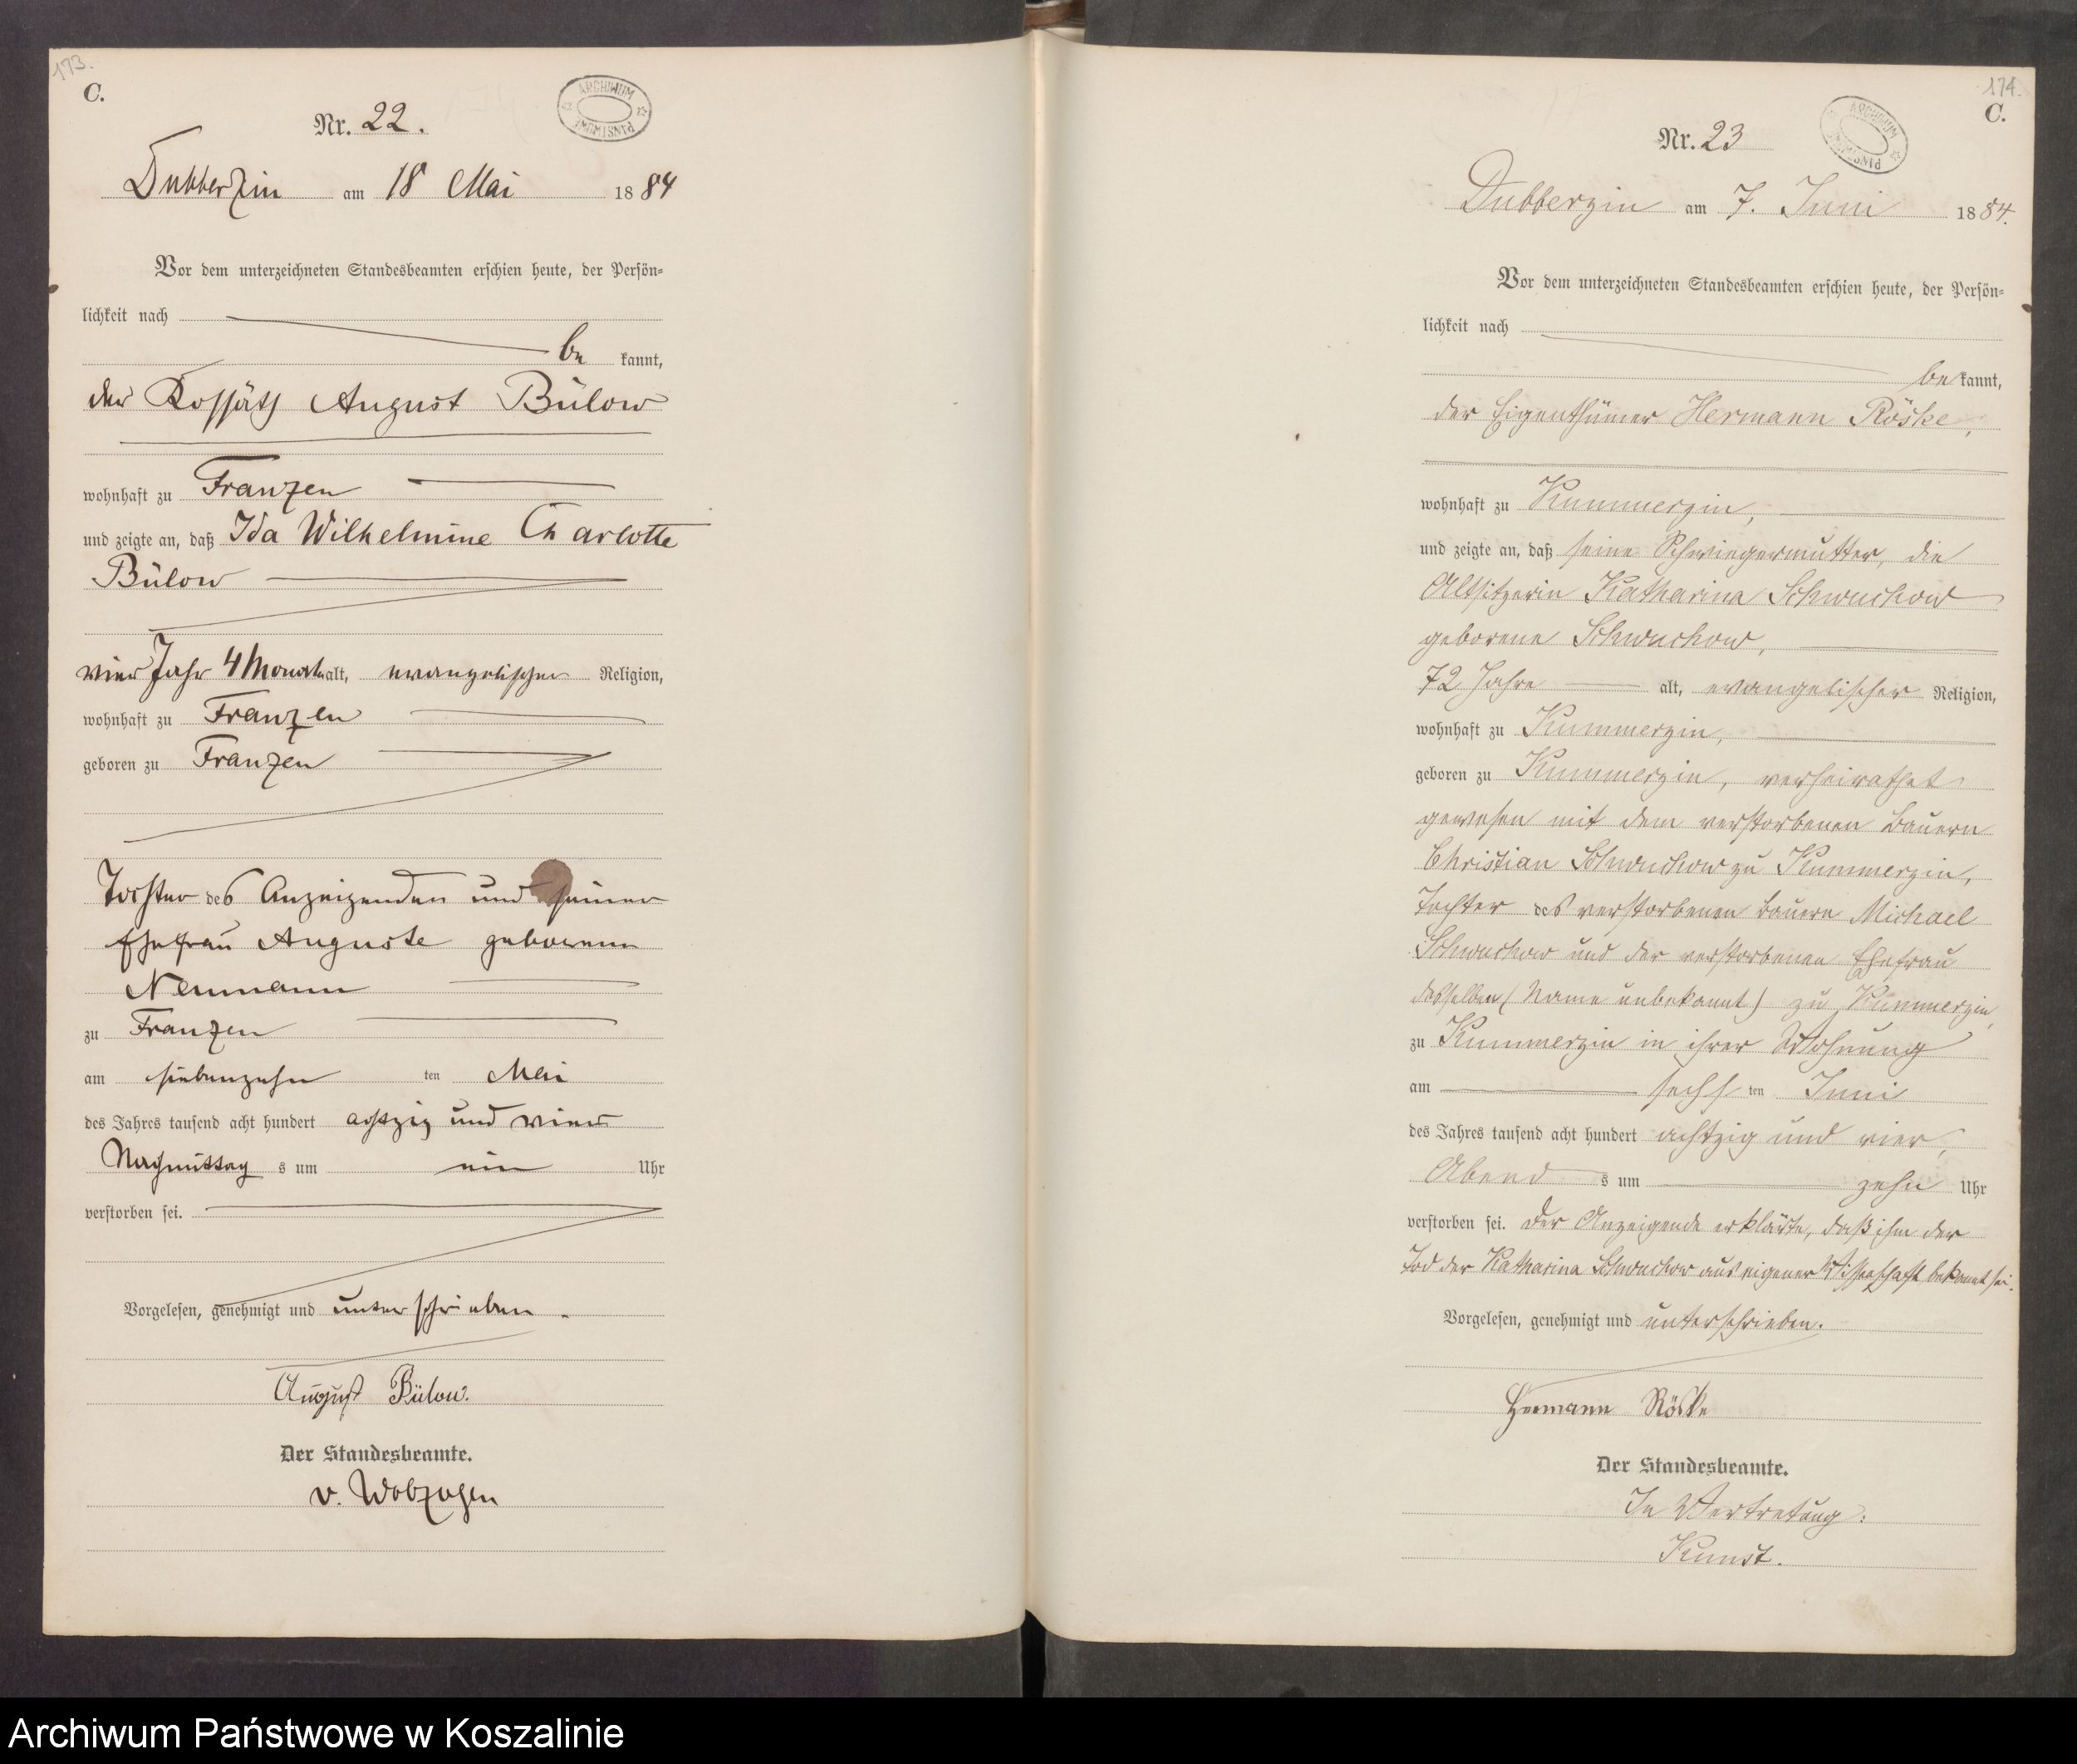 173.
C.
ARCHIWUM PAŃSTWOWE
Nr. 22.
Dubberzin am 18 Mai 1884
Vor dem unterzeichneten Standesbeamten erschien heute, der Persön-
lichkeit nach
be kannt,
der Kossäth August Bülow
wohnhaft zu Franzen
und zeigte an, daß Ida Wilhelmine Charlotte
Bülow
vier Jahr 4 Monate alt, evangelischer Religion,
wohnhaft zu Franzen
geboren zu Franzen
Tochter des Anzeigenden und seiner
Ehefrau Auguste geborenen
Neumann
zu Franzen
am siebenzehn ten Mai
des Jahres tausend acht hundert achtzig und vier
Nachmittag s um ein Uhr
verstorben sei.
Vorgelesen, genehmigt und unterschrieben.
August Bülow.
Der Standesbeamte.
v. Wolzogen
174.
C.
ARCHIWUM PAŃSTWOWE
Nr. 23
Dubberzin am 7. Juni 1884.
Vor dem unterzeichneten Standesbeamten erschien heute, der Persön-
lichkeit nach
be kannt,
der Eigenthümer Hermann Röske,
wohnhaft zu Kummerzin,
und zeigte an, daß seine Schwiegermutter, die
Altsitzerin Katharina Schwuchow
geborene Schwuchow,
72 Jahre alt, evangelischer Religion,
wohnhaft zu Kummerzin,
geboren zu Kummerzin, verheirathet
gewesen mit dem verstorbenen Bauern
Christian Schwuchow zu Kummerzin,
Tochter des verstorbenen Bauern Michael
Schwuchow und der verstorbenen Ehefrau
desselben (Name unbekannt) zu Kummerzin,
zu Kummerzin in ihrer Wohnung
am sechs ten Juni
des Jahres tausend acht hundert achtzig und vier,
Abend s um zehn Uhr
verstorben sei. Der Anzeigende erklärte, daß ihm der
Tod der Katharina Schwuchow aus eigener Wissenschaft bekannt sei.
Vorgelesen, genehmigt und unterschrieben.
Hermann Röske
Der Standesbeamte.
In Vertretung:
Kunst.
Archiwum Państwowe w Koszalinie